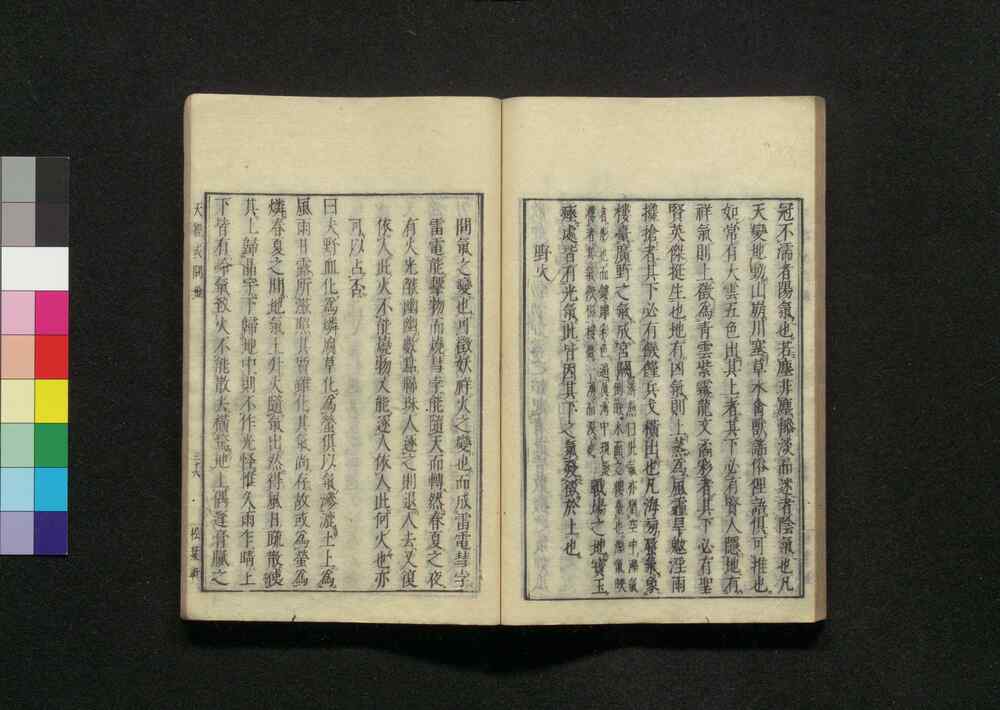 冠不濡者陽氣也若塵非塵慘淡而迷者陰氣也凡
天變地動山崩川塞草木禽獸謡俗俚語俱可推也
如常有大雲五色出其上者其下必有賢人隱地有
祥氣則上徵為青雲紫霧龍文而彩者其下必有聖
賢英傑挺生也地有凶氣則上蒸為風霾旱魃淫雨
攙搶者其下必有饑饉兵戈橫出也凡海易蜃氣象
樓臺廣野之氣成宮闕
戰場之地寶玉
瘞處皆有光氣此皆因其下之氣發徵於上也
野火
問氣之變也可徵妖祥火之變也而成雷電彗孛
雷電能擊物而燒彗孛能隨天而轉然春夏之夜
有火光熒幽幽數點聯珠人逐之則退人去又復
依人此火不能燒物又能逐人依人此何火也亦
可以占否
曰大野血化為燐腐草化為螢俱以氣滲漉土上為
風雨日露所蒸照其質雖化其氣尚存故或為螢為
燐春夏之間地氣上升火隨氣出然得風日疏散使
其上歸晶宇下歸地中則不作光怪惟久雨乍晴上
下皆有冷氣致火不能散去積於地上偶逢膏膩之
天經或問 卷
三十八
松葉軒